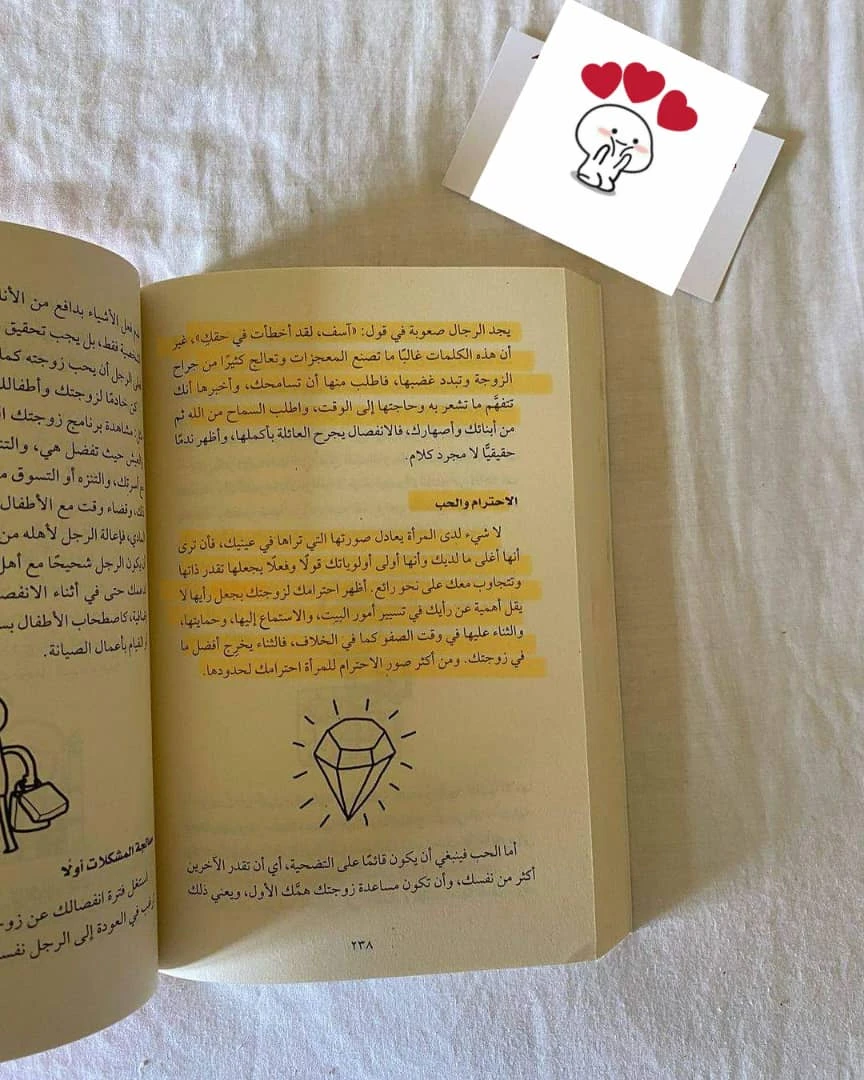 يجد الرجال صعوبة في قول: «آسف، لقد أخطأت في حقكِ»، غير
أن هذه الكلمات غالبًا ما تصنع المعجزات وتعالج كثيرًا من جراح
الزوجة وتبدد غضبها، فاطلب منها أن تسامحك، وأخبرها أنك
تتفهَّم ما تشعر به وحاجتها إلى الوقت، واطلب السماح من الله ثم
من أبنائك وأصهارك، فالانفصال يجرح العائلة بأكملها، وأظهر ندمًا
حقيقيًّا لا مجرد كلام.
الاحترام والحب
لا شيء لدى المرأة يعادل صورتها التي تراها في عينيك، فأن ترى
أنها أغلى ما لديك وأنها أولى أولوياتك قولًا وفعلًا يجعلها تقدر ذاتها
وتتجاوب معك على نحو رائع. أظهر احترامك لزوجتك بجعل رأيها لا
يقل أهمية عن رأيك في تسيير أمور البيت، والاستماع إليها، وحمايتها،
والثناء عليها في وقت الصفو كما في الخلاف، فالثناء يخرج أفضل ما
في زوجتك. ومن أكثر صور الاحترام للمرأة احترامك لحدودها.
أما الحب فينبغي أن يكون قائمًا على التضحية، أي أن تقدر الآخرين
أكثر من نفسك، وأن تكون مساعدة زوجتك همَّك الأول، ويعني ذلك
٢٣٨
فعل الأشياء بدافع من
فقط، بل يجب تحقيق
الرجل أن يحب زوجته
كن خادمًا لزوجتك
مشاهدة برنامج زوجتك
حيث تفضل هي،
والتنزه أو التسوق
وقضاء وقت مع الأطفال
فإعالة الرجل لأهله من
يكون الرجل شحيحًا مع
حتى في أثناء
كاصطحاب الأطفال
القيام بأعمال الصيانة.
معالجة المشكلات أولًا
استغل فترة انفصالك عن
في العودة إلى الرجل